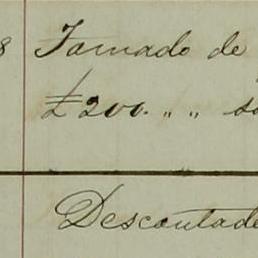 8 Tomado de
£ 200. „ „ s
Descontad